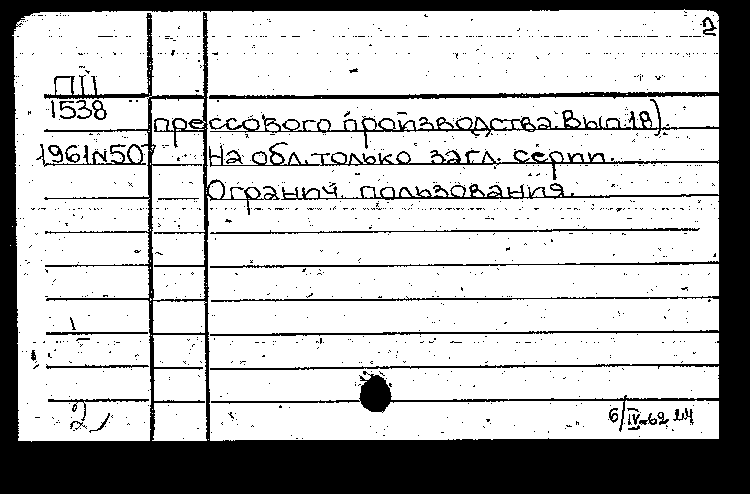 2
ПП
1538
прессового производства. Вып. 18).
1961N507
На обл. только загл. серии.
Огранич. пользования.
1
2
6/IV-62